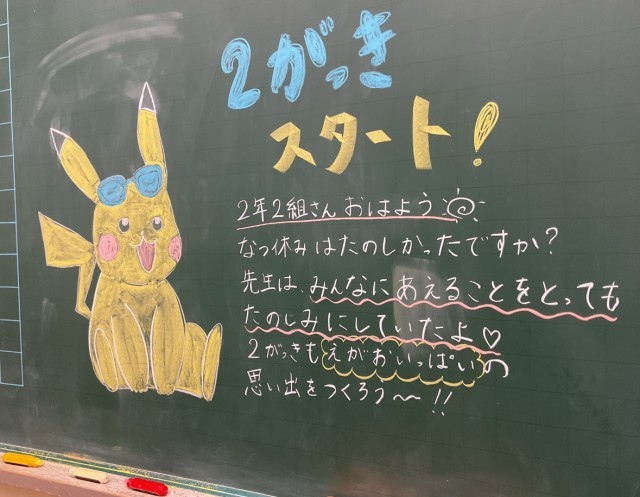 2がっき
スタート!
2年2組さん おはよう
なつ休みはたのしかったですか?
先生は、みんなにあえることをとっても
たのしみにしていたよ♡
2がっきもえがおいっぱいの
思い出をつくろう〜!!